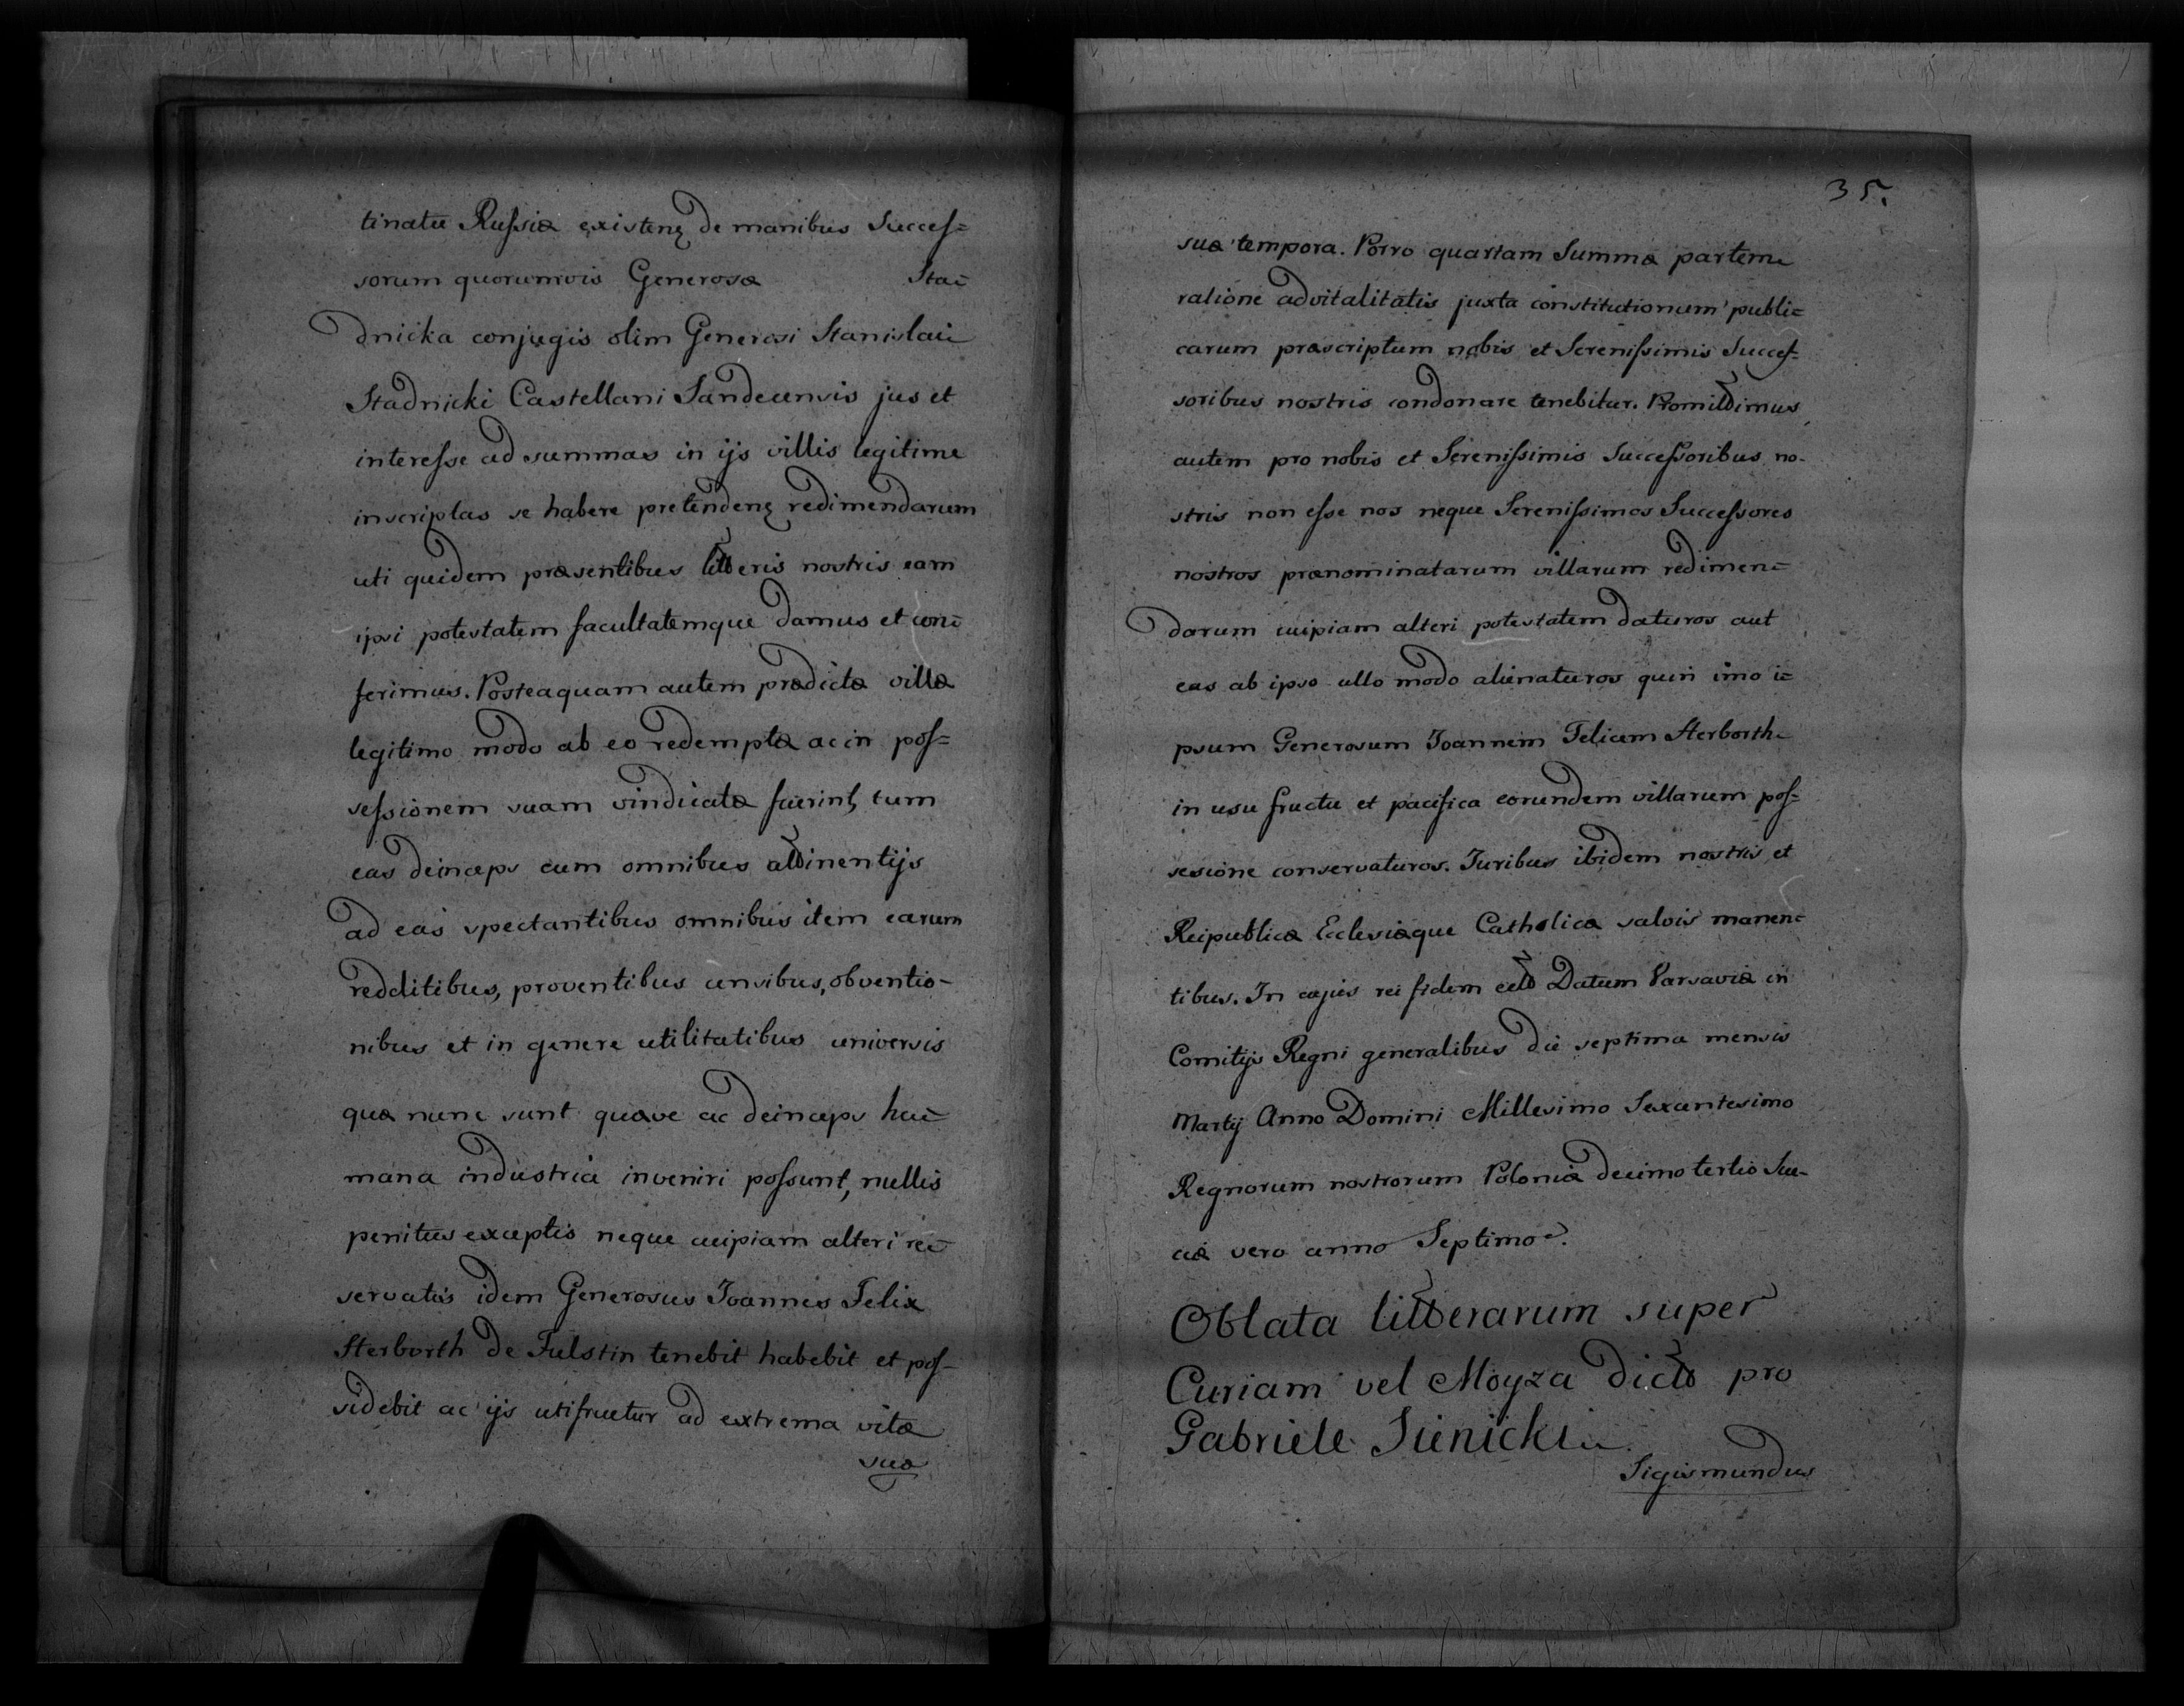 tinatu Russiæ existenȩ de manibus Succes=
sorum quorumvis Generosæ Sta=
dnicka conjugis olim Generosi Stanislai
Stadnicki Castellani Sandecensis jus et
interesse ad summas in ijs villis legitime
inscriptas se habere pretendenȩ redimendarum
uti quidem præsentibus litteris nostris eam
ipsi potestatem facultatemque damus et con=
ferimus. Posteaquam autem prædictæ villæ
legitimo modo ab eo redemptæ ac in pos=
sessionem suam vindicatæ fuerint, tum
eas deinceps cum omnibus attinentijs
ad eas spectantibus omnibus item earum
redditibus, proventibus censibus, obventio-
nibus et in genere utilitatibus universis
quæ nunc sunt quæve ac deinceps hu=
mana industria inveniri possunt, nullis
penitus exceptis neque cuipiam alteri re=
servatis idem Generosus Joannes Felix
Herborth de Fulstin tenebit habebit et pos-
sidebit ac ijs utifruetur ad extrema vitæ
suæ
35.
suæ tempora. Porro quartam Summæ partem
ratione advitalitatis juxta constitutionum publi=
carum præscriptum nobis et Serenissimis Succes=
soribus nostris condonare tenebitur. Promittimus
autem pro nobis et Serenissimis Successoribus no-
stris non esse nos neque Serenissimos Successores
nostros prænominatarum villarum redimen=
darum cuipiam alteri potestatem daturos aut
eas ab ipso ullo modo alienaturos quin imo i=
psum Generosum Joannem Felicem Herborth
in usu fructu et pacifica eorundem villarum pos=
sesione conservaturos. Juribus ibidem nostris et
Reipublicæ Ecclesiæque Catholicæ salvis manen=
tibus. In cujus rei fidem ettt Datum Varsaviæ in
Comitijs Regni generalibus die septima mensis
Martij Anno Domini Millesimo Sexcentesimo
Regnorum nostrorum Poloniæ decimo tertio Sue-
ciæ vero anno Septimo.
Oblata litterarum super
Curiam vel Moyza dictt pro
Gabriele Sienicki
Sigismundus